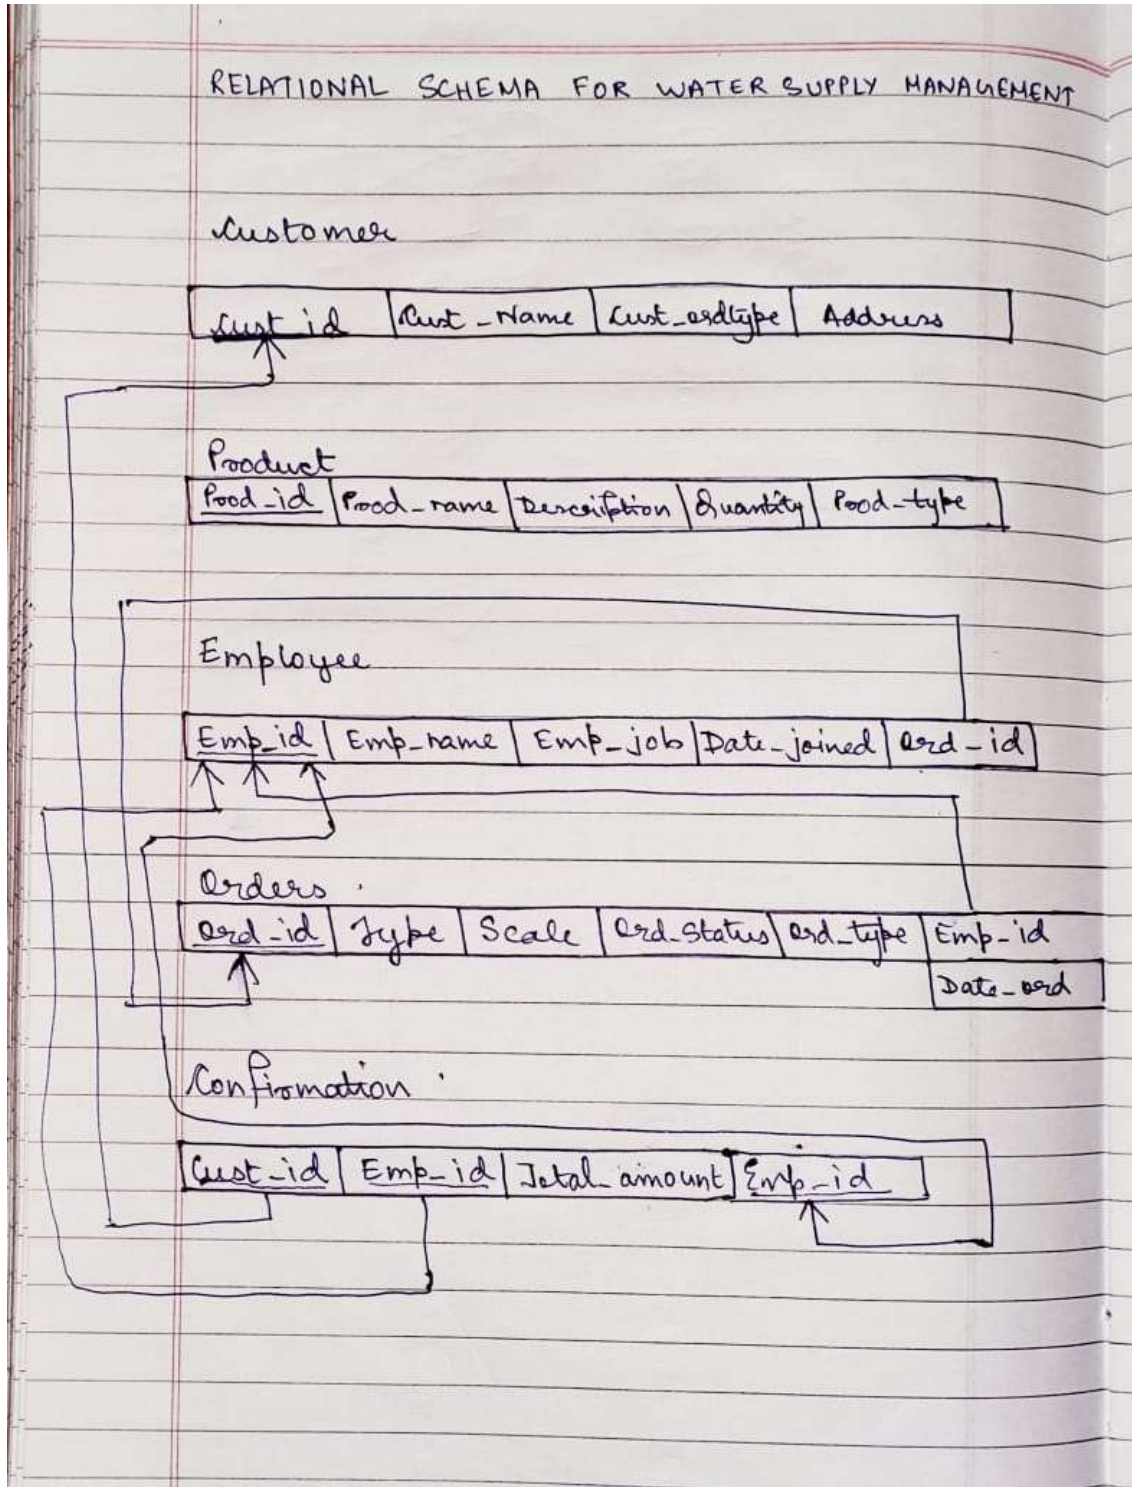 RELATIONAL SCHEMA FOR WATER SUPPLY MANAGEMENT
Customer
Cust_id Cust_Name Cust_ordtype Address
Product
Prod_id Prod_name Description Quantity Prod_type
Employee
Emp_id Emp_name Emp_job Date_joined Ord_id
Orders
Ord_id Type Scale Ord_Status Ord_type Emp_id
Date_ord
Confirmation
Cust_id Emp_id Total_amount Emp_id